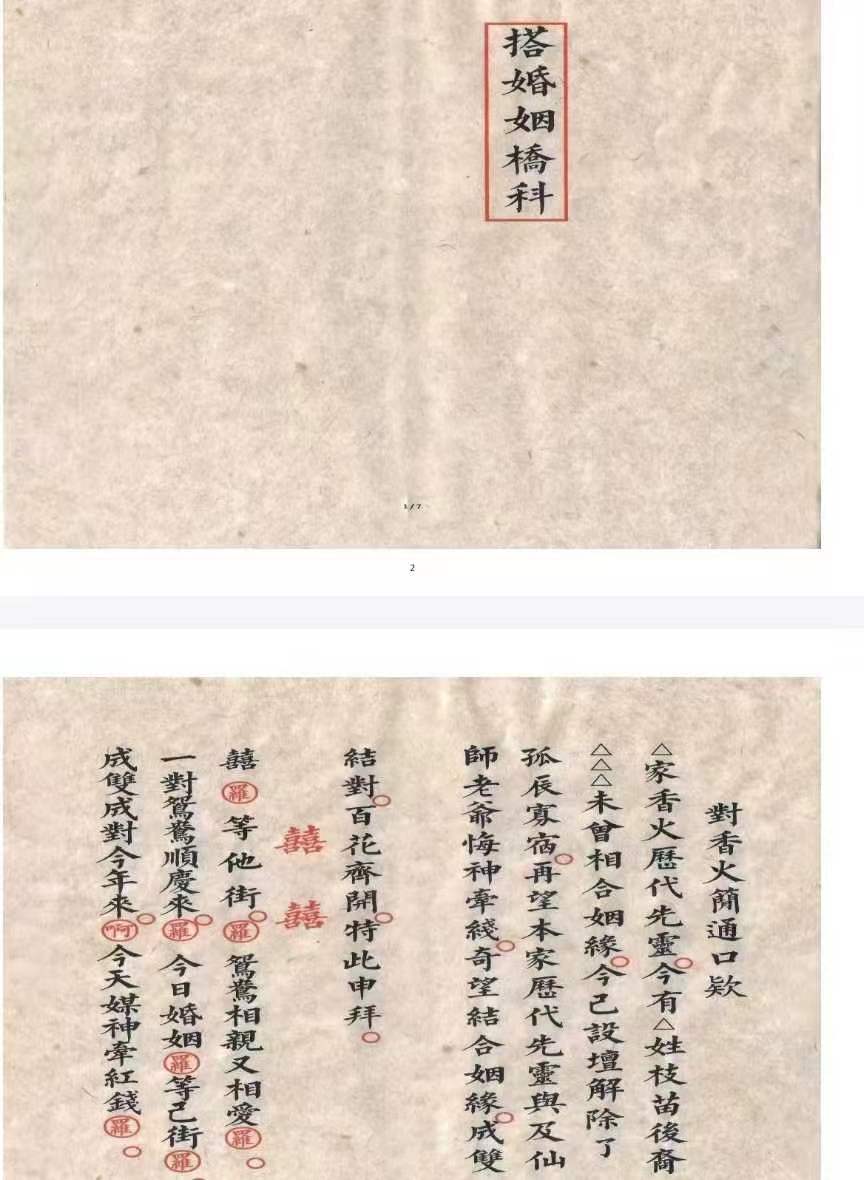 搭婚姻橋科
1 / 7
2
對香火簡通口欵
△家香火歷代先靈。今有△姓枝苗後裔
△△△未曾相合姻緣。今已設壇解除了
孤辰寡宿。再望本家歷代先靈與及仙
師老爺悔神牽綫。奇望結合姻緣。成雙
結對。百花齊開。特此申拜。
囍 囍
囍羅等他街。羅鴛鴦相親又相愛羅。
一對鴛鴦順慶來。羅今日婚姻羅等己街羅
成雙成對今年來。啊今天媒神牽紅錢羅。